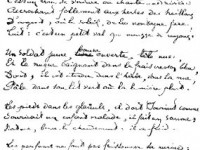 un trou de verdure où chante une rivière
Accrochant follement aux herbes des haillons
D'argent ; où le soleil, de la montagne fière,
Luit : c'est un petit val qui mousse de rayons.
Un soldat jeune, bouche ouverte, tête nue,
Et la nuque baignant dans le frais cresson bleu,
Dort ; il est étendu dans l'herbe, sous la nue,
Pâle dans son lit vert où la lumière pleut.
Les pieds dans les glaïeuls, il dort. Souriant comme
Sourirait un enfant malade, il fait un somme :
Nature, berce-le chaudement : il a froid.
Les parfums ne font pas frissonner sa narine ;